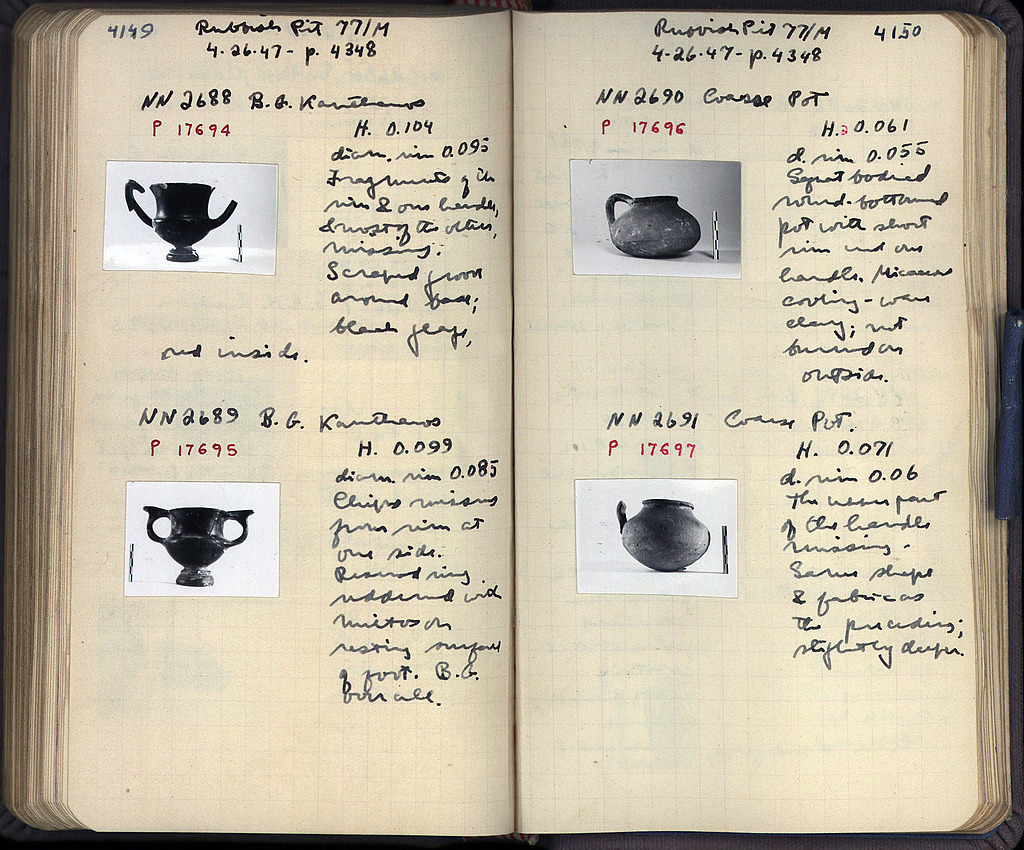 4149
Rubbish Pit 77/M
4-26-47- p. 4348
NN 2688 B.G. Kantharos
P 17694
H. 0.104
diam. rim 0.095
Fragments of the
rim & one handle,
& most of the other,
missing.
Scraped groove
around base;
black glaze,
red inside.
NN 2689 B.G. Kantharos
P 17695
H. 0.099
diam. rim 0.085
Chips missing
from rim at
one side.
Reserved ring
reddened with
miltos on
resting surface
of foot. B.G.
over all.
4150
Rubbish Pit 77/M
4-26-47- p. 4348
NN 2690 Coarse Pot
P 17696
H. 0.061
d. rim 0.055
Squat bodied
round-bottomed
pot with short
rim and one
handle. Micaceous
cooking-ware
clay; not
burned on
outside.
NN 2691 Coarse Pot.
P 17697
H. 0.071
d. rim 0.06
The upper part
of the handle
missing.
Same shape
& fabric as
the preceding;
slightly deeper.